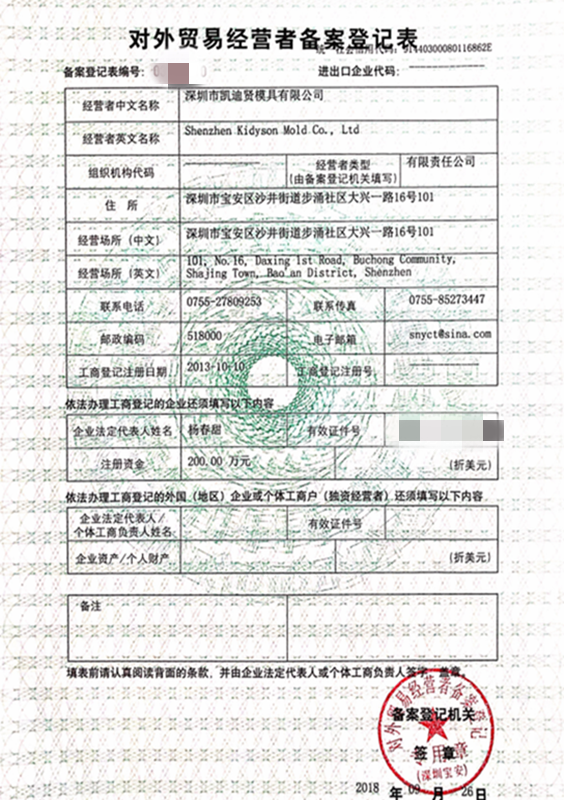 对外贸易经营者备案登记表
统一社会信用代码：91440300080116862E
备案登记表编号：
进出口企业代码：
经营者中文名称 深圳市凯迪贤模具有限公司
经营者英文名称 Shenzhen Kidyson Mold Co., Ltd
组织机构代码 经营者类型 有限责任公司
(由备案登记机关填写)
住 所 深圳市宝安区沙井街道步涌社区大兴一路16号101
经营场所（中文） 深圳市宝安区沙井街道步涌社区大兴一路16号101
经营场所（英文） 101, No.16, Daxing 1st Road, Buchong Community,
Shajing Town, Bao'an District, Shenzhen
联系电话 0755-27809253 联系传真 0755-85273447
邮政编码 518000 电子邮箱 snyct@sina.com
工商登记注册日期 2013-10-10 工商登记注册号
依法办理工商登记的企业还须填写以下内容
企业法定代表人姓名 杨春甜 有效证件号
注册资金 200.00 万元 (折美元)
依法办理工商登记的外国（地区）企业或个体工商户（独资经营者）还须填写以下内容
企业法定代表人/
个体工商负责人姓名 有效证件号
企业资产/个人财产 (折美元)
备注
填表前请认真阅读背面的条款，并由企业法定代表人或个体工商负责人签字、盖章。
对外贸易经营者备案登记
备案登记机关
专用章
签 章
(深圳宝安)
2018 年 09 月 26 日